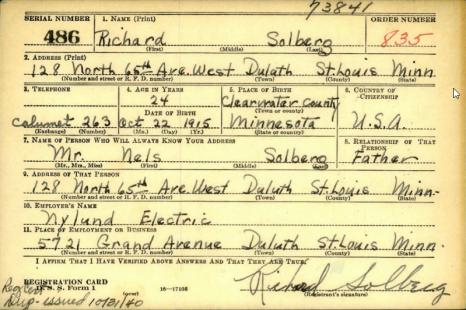 73841
SERIAL NUMBER 1. NAME (Print) ORDER NUMBER
486 Richard Solberg 835
(First) (Middle) (Last)
2. ADDRESS (Print)
128 North 65th Ave. West Duluth St. Louis Minn
(Number and street or R. F. D. number) (Town) (County) (State)
3. TELEPHONE 4. AGE IN YEARS 5. PLACE OF BIRTH 6. COUNTRY OF CITIZENSHIP
24 Clearwater County
DATE OF BIRTH (Town or county)
Calumet 263 Oct 22 1915 Minnesota U.S.A.
(Exchange) (Number) (Mo.) (Day) (Yr.) (State or country)
7. NAME OF PERSON WHO WILL ALWAYS KNOW YOUR ADDRESS 8. RELATIONSHIP OF THAT PERSON
Mr. Nels Solberg Father
(Mr., Mrs., Miss) (First) (Middle) (Last)
9. ADDRESS OF THAT PERSON
128 North 65th Ave. West Duluth St. Louis Minn.
(Number and street or R. F. D. number) (Town) (County) (State)
10. EMPLOYER'S NAME
Nylund Electric
11. PLACE OF EMPLOYMENT OR BUSINESS
5721 Grand Avenue Duluth St. Louis Minn.
(Number and street or R. F. D. number) (Town) (County) (State)
I AFFIRM THAT I HAVE VERIFIED ABOVE ANSWERS AND THAT THEY ARE TRUE.
REGISTRATION CARD
D. S. S. Form 1 16—17105 Richard Solberg
(Registrant's signature)
Dup. issued 10/31/40